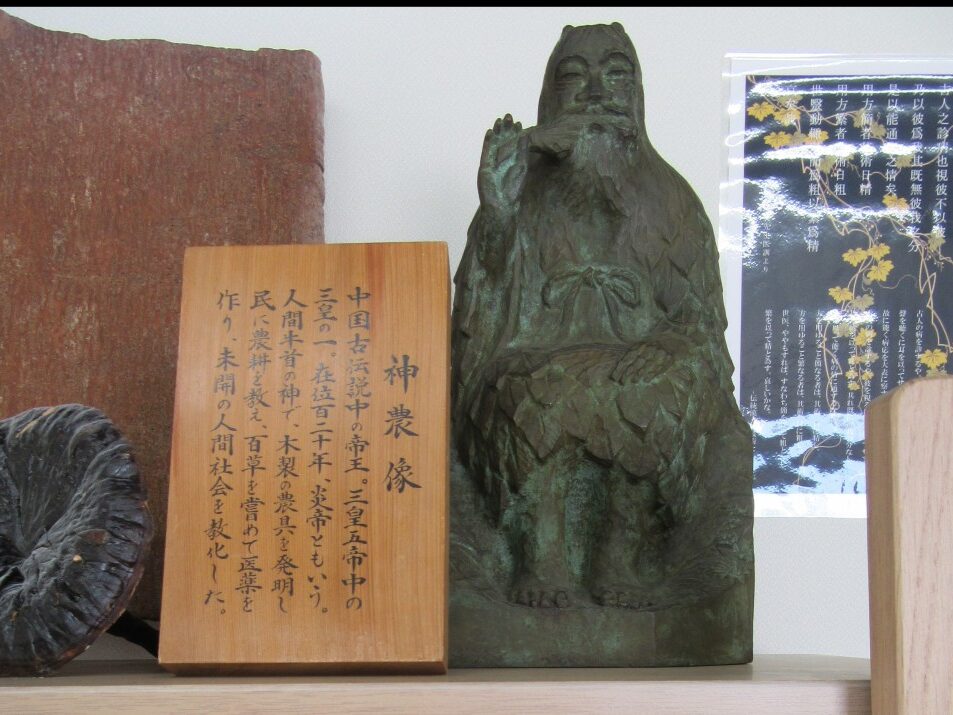 神農像
中国古伝説中の帝王。三皇五帝中の
三皇の一。在位百二十年、炎帝ともいう。
人間牛首の神で、木製の農具を発明し
民に農耕を教え、百草を嘗めて医薬を
作り、未開の人間社会を教化した。
人之診病也視彼不以彼
乃以彼爲我其既無彼我之分
是以能通病之情矣
用方簡者其術日精
用方繁者其術日粗
世醫動輒以簡爲粗以繁爲精
医訓より
繁を以つて精と為す。哀しいかな。